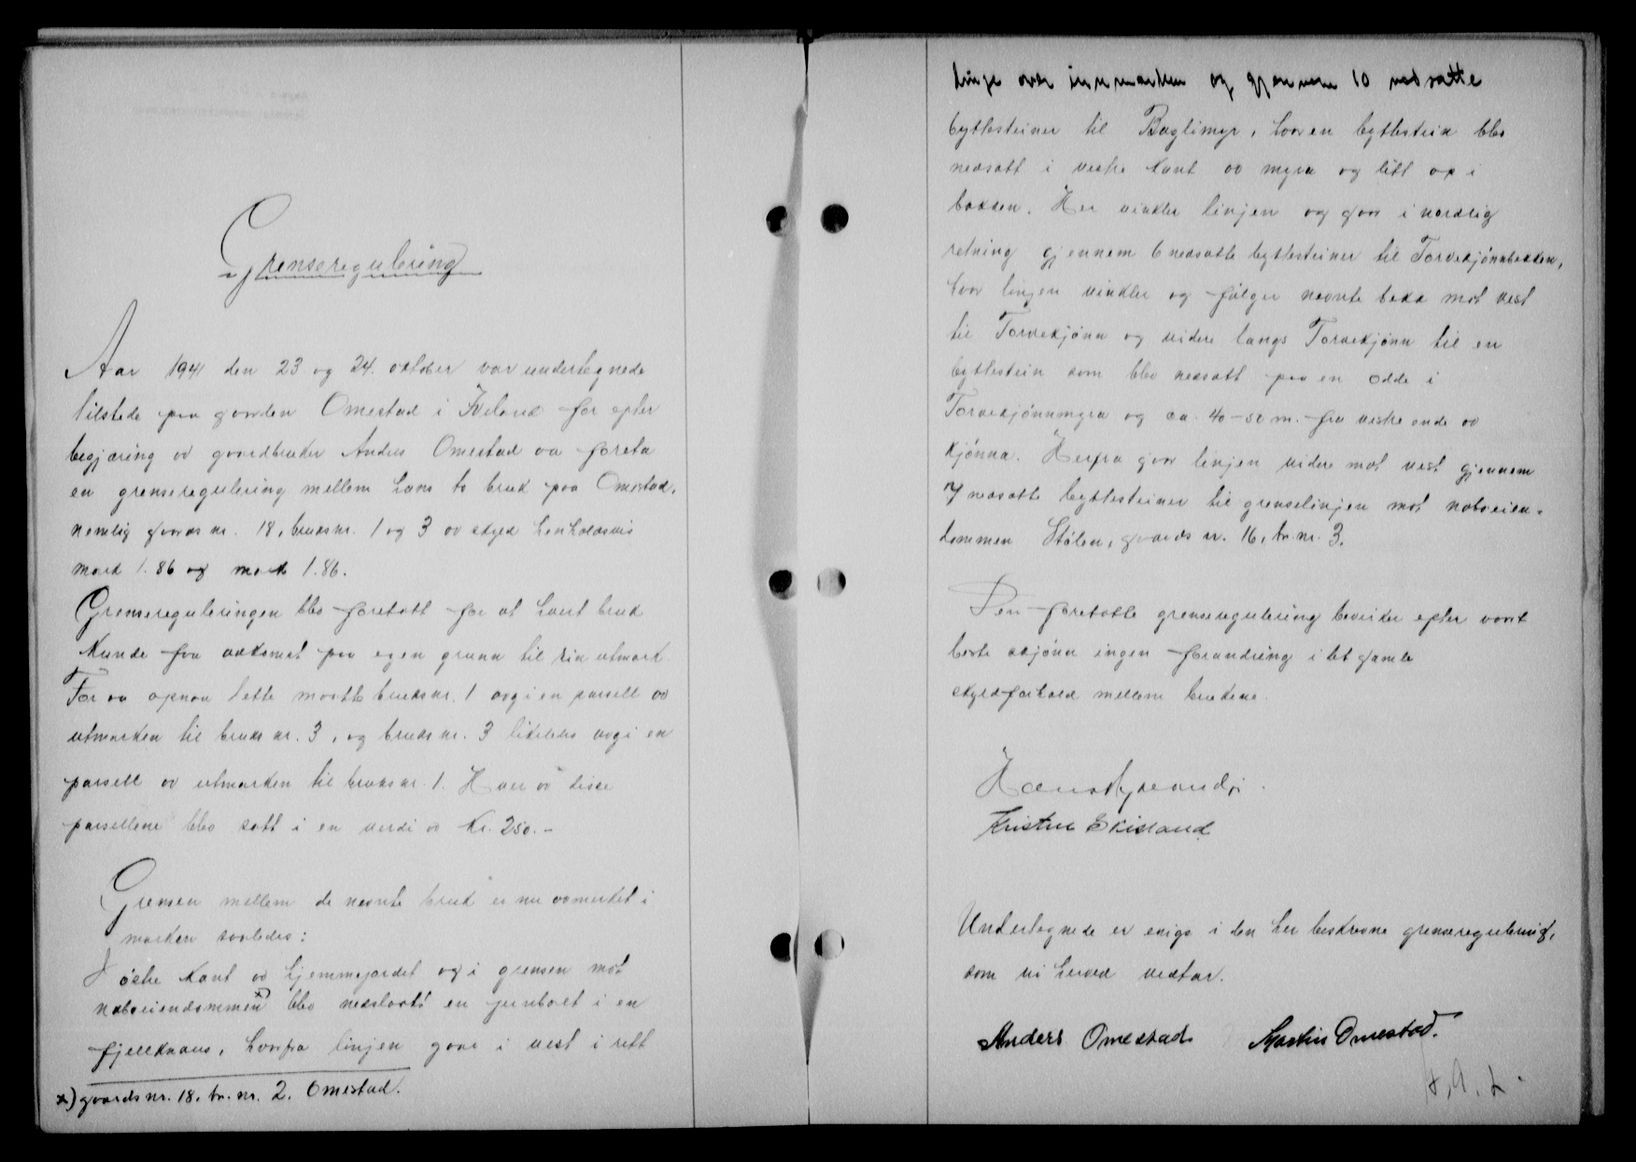 Grenseregulering
Aar 1941 den 23 og 24. oktober var undertegnede
tilstede paa gaarden Omestad i Iveland for efter
begjæring av gaardbruker Anders Omestad aa foreta
en grenseregulering mellem hans to bruk paa Omestad,
nemlig gaards nr. 18, bruksnr. 1 og 3 av skyld henholdsvis
mark 1.86 og mark 1.86.
Grensereguleringen blev foretatt for at hvert bruk
kunde faa adkomst paa egen grunn til sin utmark.
For aa opnaa dette maatte bruksnr. 1 avgi en parsell av
utmarken til bruks nr. 3, og bruks nr. 3 likeledes avgi en
parsell av utmarken til bruksnr. 1. Hver av disse
parsellene blev satt i en verdi av Kr. 250.-
Grensen mellem de nevnte bruk er nu avmerket i
marken saaledes:
I östre kant av hjemmejordet og i grensen mot
naboeiendommen x) blev nedslaatt en jernbolt i en
fjellknaus, hvorfra linjen gaar i vest i rett
x) gaards nr. 18. br. nr. 2. Omestad.
linje over innmarken og gjennem 10 nedsatte
byttesteiner til Baglimyr, hvor en byttestein blev
nedsatt i vestre kant av myra og litt op i
bakken. Her vinkler linjen og gaar i nordlig
retning gjennem 6 nedsatte byttesteiner til Torvekjönnbekken,
hvor linjen vinkler og fölger nevnte bekk mot vest
til Torvekjönn og videre langs Torvekjönn til en
byttestein som blev nedsatt paa en odde i
Torvekjönnmyra og ca. 40-50 m. fra vestre ende av
kjönna. Herfra gaar linjen videre mot vest gjennem
7 nedsatte byttesteiner til grenselinjen mot naboeien-
dommen Stölen, gaards nr. 16, br. nr. 3.
Den foretatte grenseregulering bevirker efter vaart
beste skjönn ingen forandring i det gamle
skyldforhold mellem brukene.
Kristen Skisland
Undertegnede er enige i den her beskrevne grenseregulering,
som vi herved vedtar.
Anders Omestad Martin Omestad.